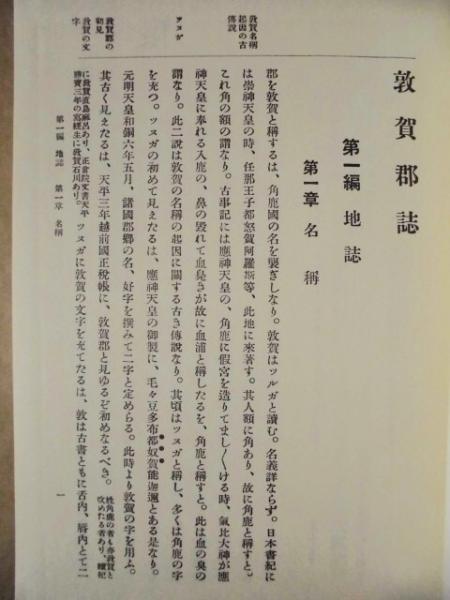 敦賀郡誌
第一編 地誌
第一章 名稱
敦賀名稱
起因の古
傳說
郡を敦賀と稱するは、角鹿國の名を襲ぎしなり。敦賀はツルガと讀む。名義詳ならず。日本書紀に
は崇神天皇の時、任那王子都怒賀阿羅斯等、此地に來著す。其人額に角あり、故に角鹿と稱すと。
これ角の額の謂なり。古事記には應神天皇の、角鹿に假宮を造りてまし〱ける時、氣比大神が應
神天皇に奉れる入鹿の、鼻の毀れて血臭きが故に血浦と稱したるを、角鹿と稱すと。此は血の臭の
謂なり。此二說は敦賀の名稱の起因に關する古き傳說なり。其頃はツヌガと稱し、多くは角鹿の字
ツヌガ
を充つ。ツヌガの初めて見えたるは、應神天皇の御製に、毛々豆多布都奴賀能迦邇とある是なり。
元明天皇和銅六年五月、諸國郡鄕の名、好字を撰みて二字と定めらる。此時より敦賀の字を用ふ。
敦賀郡の
初見
其古く見えたるは、天平三年越前國正稅帳に、敦賀郡と見ゆるぞ初めなるべき。
姓角鹿の者も亦敦賀と
改めたる者あり、續紀
に敦賀直島麻呂あり、正倉院文書天平
勝寶三年の寫經生に敦賀石川あり。
敦賀の文
字
ツヌガに敦賀の文字を充てたるは、敦は古書ともに舌內、唇內とて二
第一編 地誌 第一章 名稱
一